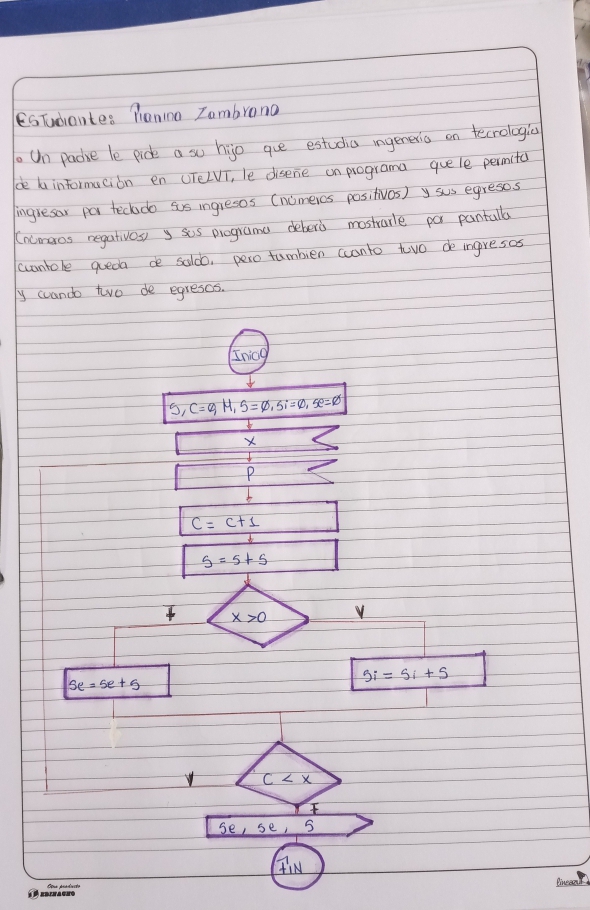 Estudiante: Pianina Zambrano
• Un padre le pide a su hijo que estudia ingeneria en tecnología
de la información en UTELVT, le diseñe un programa que le permita
ingresar por teclado sus ingresos (números positivos) y sus egresos
(números negativos) y sus programa deberá mostrarle por pantalla
cuanto le queda de saldo, pero tambien cuanto tuvo de ingresos
y cuando tuvo de egresos.
Inicio
S, C=0, M, S=0, Si=0, Se=0
X
P
C = C+1
S = S+S
X >0
F
V
Se = Se + S
Si = Si + S
C < X
V
F
Se, Se, S
FIN
Otro producto
EDINAGRO
lineazul